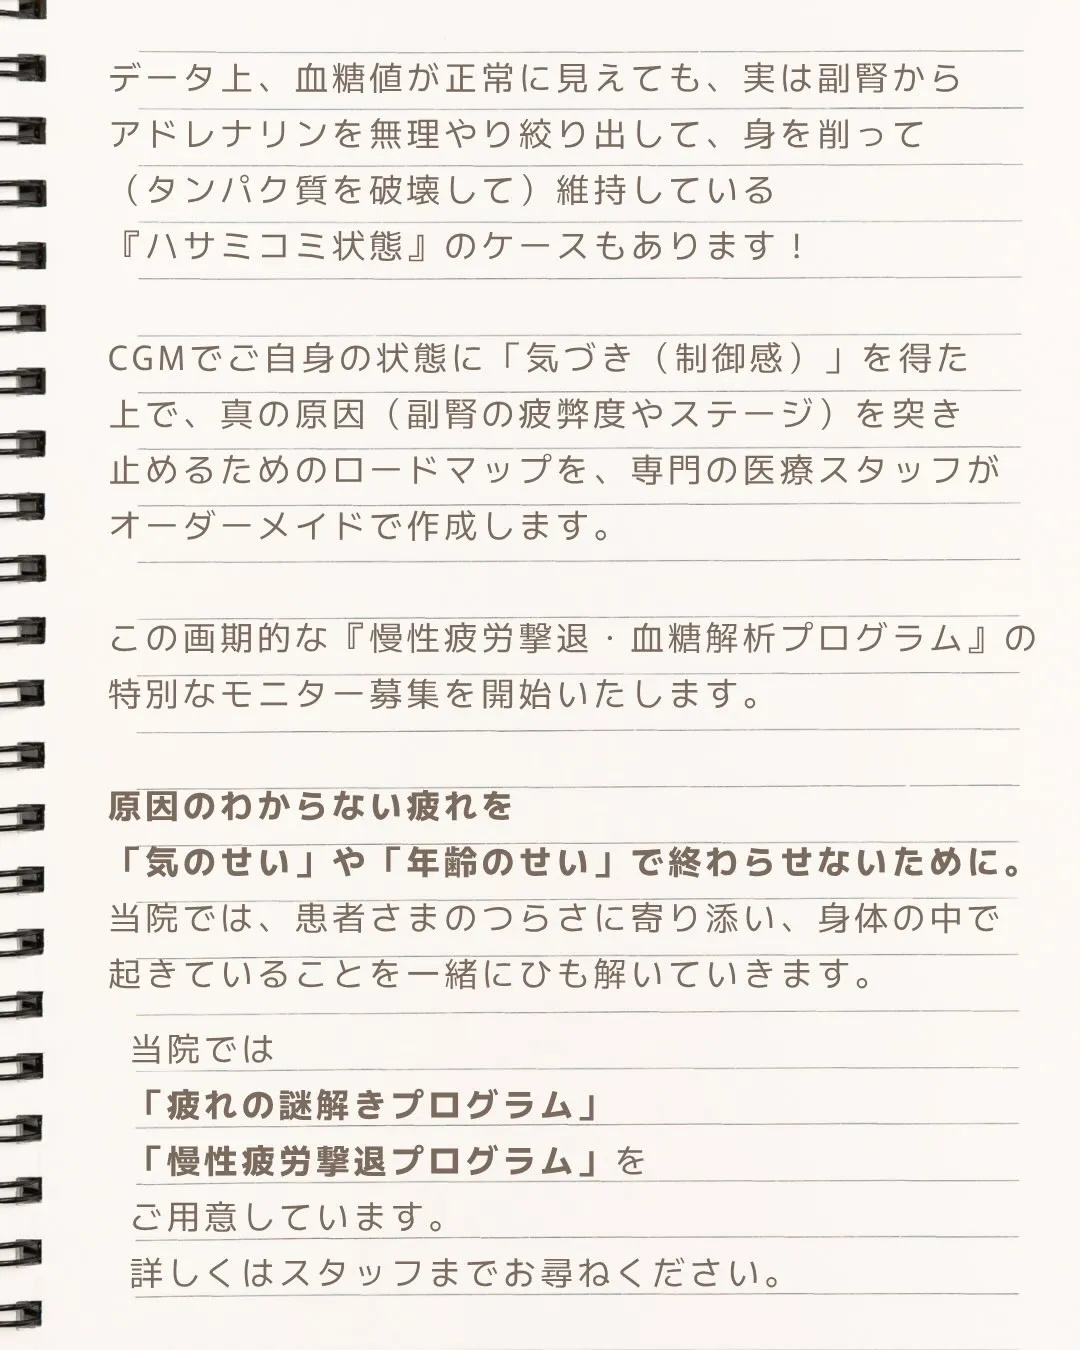 データ上、血糖値が正常に見えても、実は副腎から
アドレナリンを無理やり絞り出して、身を削って
（タンパク質を破壊して）維持している
『ハサミコミ状態』のケースもあります！
CGMでご自身の状態に「気づき（制御感）」を得た
上で、真の原因（副腎の疲弊度やステージ）を突き
止めるためのロードマップを、専門の医療スタッフが
オーダーメイドで作成します。
この画期的な『慢性疲労撃退・血糖解析プログラム』の
特別なモニター募集を開始いたします。
原因のわからない疲れを
「気のせい」や「年齢のせい」で終わらせないために。
当院では、患者さまのつらさに寄り添い、身体の中で
起きていることを一緒にひも解いていきます。
当院では
「疲れの謎解きプログラム」
「慢性疲労撃退プログラム」を
ご用意しています。
詳しくはスタッフまでお尋ねください。